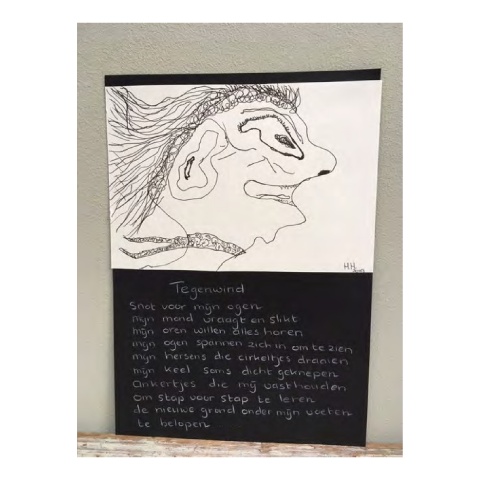 H.H.
Tegenwind
Snot voor mijn ogen
mijn mond vraagt en slikt
mijn oren willen alles horen
mijn ogen spannen zich in om te zien
mijn hersens die cirkeltjes draaien
mijn keel soms dicht geknepen
Ankertjes die mij vasthouden
om stap voor stap te leren
de nieuwe grond onder mijn voeten
te belopen